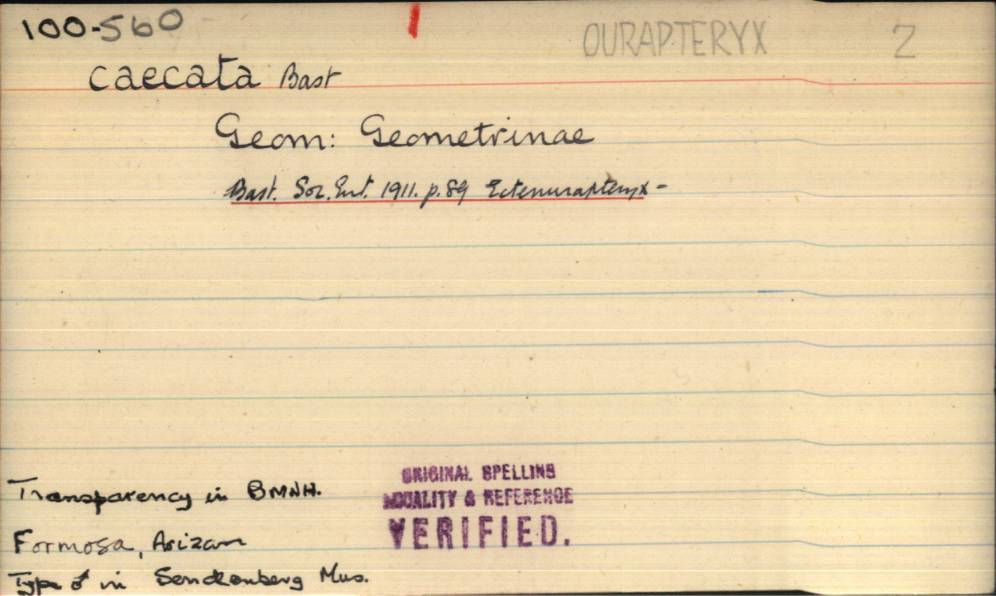 100-560
OURAPTERYX 2
caecata Bast
Geom: Geometrinae
Bast. Soc. Ent. 1911. p. 89 Ectenurapteryx-
Transparency in BMNH.
ORIGINAL SPELLING
LOCALITY & REFERENCE
VERIFIED.
Formosa, Arizan
Type ♂ in Senckenberg Mus.